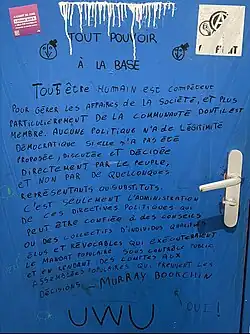 TOUT POUVOIR
À LA BASE
TOUT ÊTRE HUMAIN EST COMPÉTENT
POUR GÉRER LES AFFAIRES DE LA SOCIÉTÉ, ET PLUS
PARTICULIÈREMENT DE LA COMMUNAUTÉ DONT IL EST
MEMBRE. AUCUNE POLITIQUE N'A DE LÉGITIMITÉ
DÉMOCRATIQUE SI ELLE N'A PAS ÉTÉ
PROPOSÉE, DISCUTÉE ET DÉCIDÉE
DIRECTEMENT PAR LE PEUPLE,
ET NON PAR DE QUELCONQUES
REPRÉSENTANTS OU SUBSTITUTS.
C'EST SEULEMENT L'ADMINISTRATION
DE CES DIRECTIVES POLITIQUES QUI
PEUT ÊTRE CONFIÉE À DES CONSEILS
OU DES COLLECTIFS D'INDIVIDUS QUALIFIÉS
ÉLUS ET RÉVOCABLES QUI EXÉCUTERAIENT
LE MANDAT POPULAIRE SOUS CONTRÔLE PUBLIC
ET EN RENDANT DES COMPTES AUX
ASSEMBLÉES POPULAIRES QUI PRENNENT LES
DÉCISIONS - MURRAY BOOKCHIN
OUI!
UWU